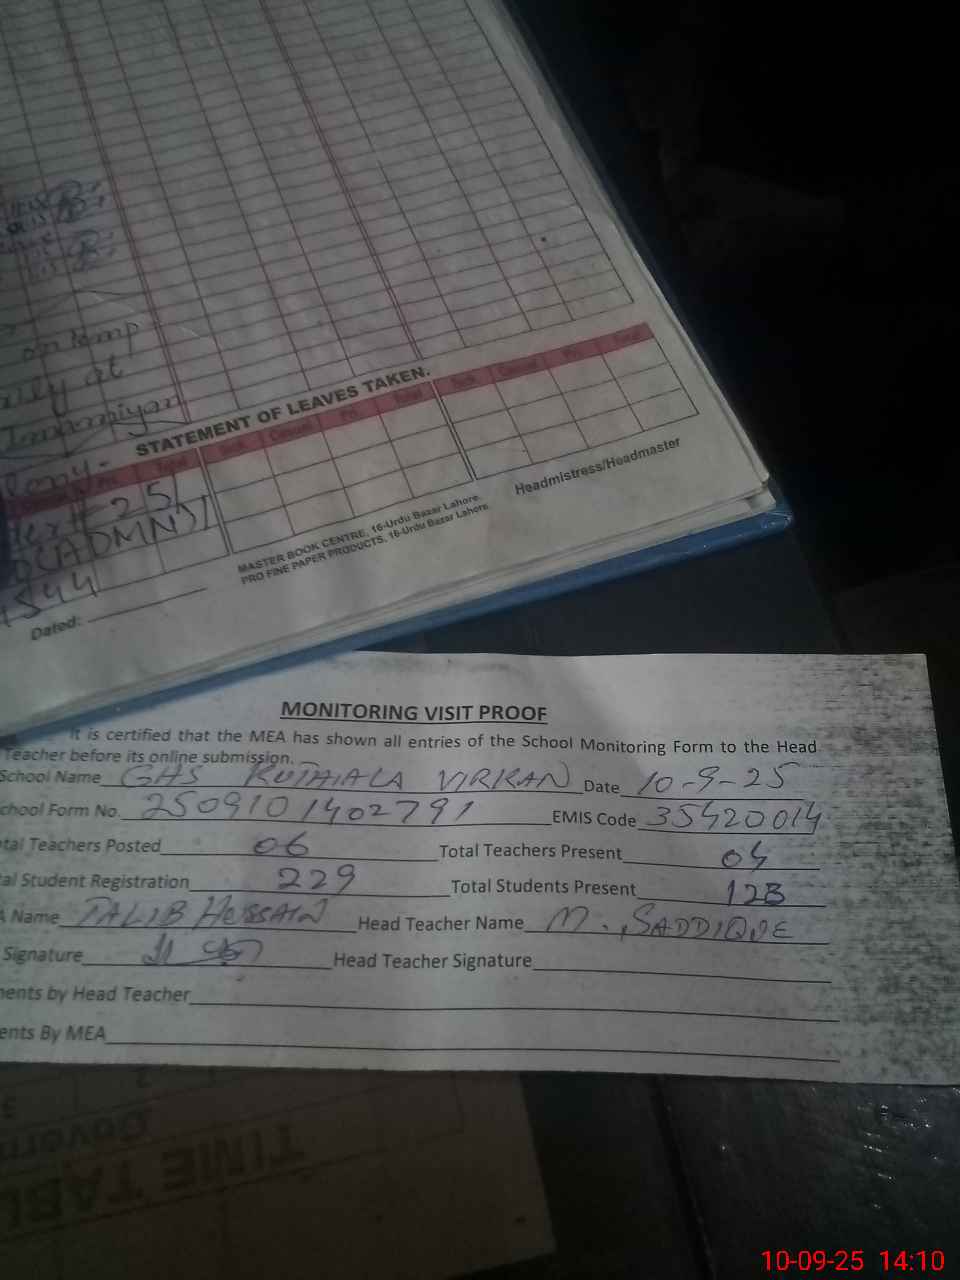 on temp
at
Imamiyan
STATEMENT OF LEAVES TAKEN.
Total Casual Pri. Total Sick Casual Pri. Total
25
(ADMN)
544
Dated:
MASTER BOOK CENTRE, 16-Urdu Bazar Lahore.
PRO FINE PAPER PRODUCTS, 16-Urdu Bazar Lahore.
Headmistress/Headmaster
MONITORING VISIT PROOF
It is certified that the MEA has shown all entries of the School Monitoring Form to the Head
Teacher before its online submission.
School Name GHS KUTHIALA VIRKAN Date 10-9-25
chool Form No. 2509101402791 EMIS Code 35420014
tal Teachers Posted 06 Total Teachers Present 04
al Student Registration 229 Total Students Present 123
A Name TALIB HUSSAIN Head Teacher Name M. SADDIQUE
Signature Head Teacher Signature
ments by Head Teacher
ents By MEA
TIME TABL
Govern
10-09-25 14:10